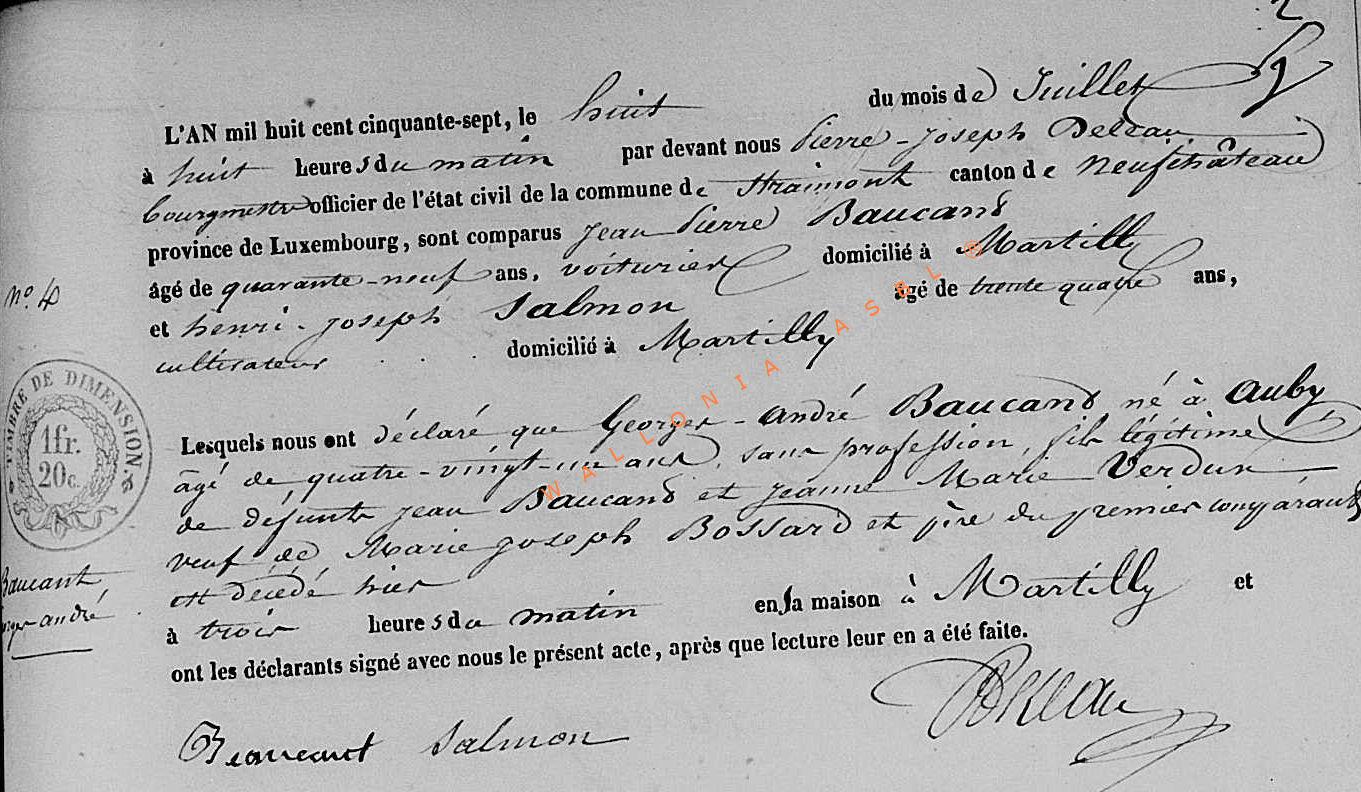 2
L'AN mil huit cent cinquante-sept, le huit du mois de Juillet
à huit heures du matin par devant nous Pierre-Joseph Deleau
bourgmestre officier de l'état civil de la commune de Straimont canton de Neufchâteau
province de Luxembourg, sont comparus Jean Pierre Baucand
âgé de quarante-neuf ans, voiturier domicilié à Martilly
et henri-Joseph Salmon âgé de trente quatre ans,
cultivateur domicilié à Martilly
Lesquels nous ont déclaré que Georges-andré Baucand né à Auby
âgé de quatre-vingt-un ans, sans profession, fils légitime
de défunts Jean Baucand et Jeanne Marie Verdun
veuf de Marie Joseph Bossard et père du premier comparant
est décédé hier
à trois heures du matin en sa maison à Martilly et
ont les déclarants signé avec nous le présent acte, après que lecture leur en a été faite.
Beaucant Salmon Deleau
no. 40
TIMBRE DE DIMENSION.
1fr.
20c.
Baucant
andré
WALLONIA ASBL ®